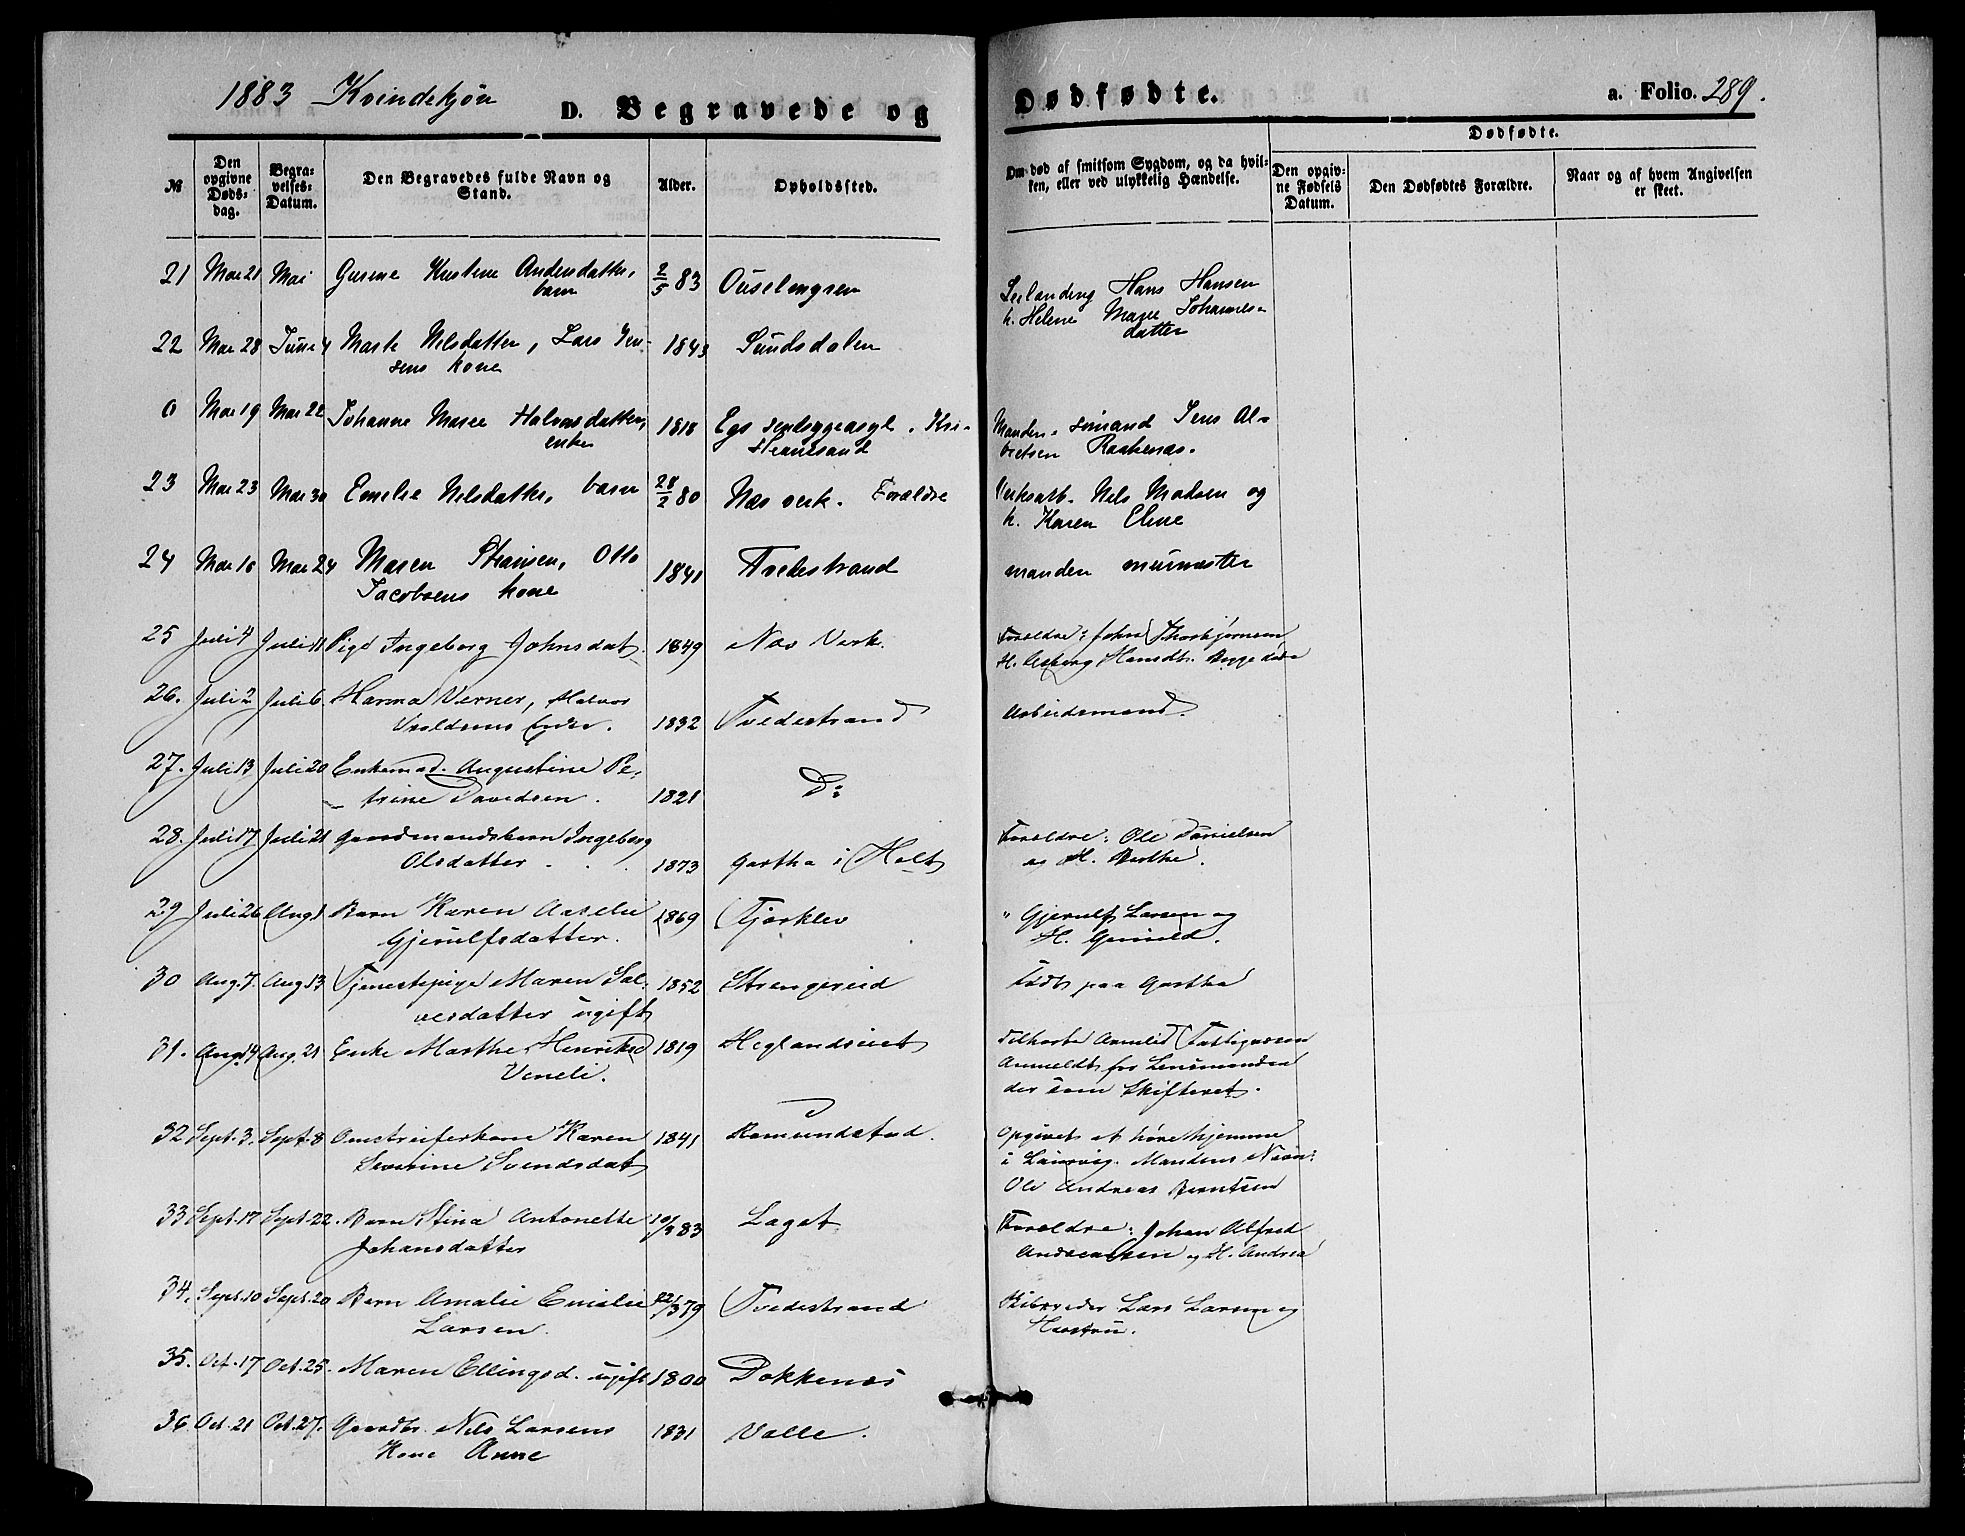 1883 Kvindekjøn
D. Begravede og Dødfødte.
a. Folio. 289.
№
Den opgivne Døds-dag.
Begra-velses-Datum.
Den Begravedes fulde Navn og Stand.
Alder.
Opholdssted.
Om død af smitsom Sygdom, og da hvil-ken, eller ved ulykkelig Hændelse.
Dødfødte.
Den opgiv-ne Fødsels Datum.
Den Dødfødtes Forældre.
Naar og af hvem Angivelsen er skeet.
21 Mai 21 Mai barn 2/5 83
Hans Hansen
h. Helene Marie Johannes-
datter
22 Mai 28 Juni 4 Marte Nilsdatter, Lars Jen- 1843 Sundsdalen
sens kone
0 Mai 19 Mai 22 Johanne Maree Halvorsdatter, 1818 Egs sindsygeasyl. Kri- Manden. sømand Jens Al-
enke stianssand bretsen
23 Mai 23 Mai 30 Emelie Nilsdatter, barn 28/2 80 Næs verk. Forældre Nils Madsen og
h. Karen Eline
24 Mai 16 Mai 24 Maren Otto 1841 Tvedestrand manden murmester
Jacobsens kone
25 Juli 4 Juli 11 Pige Ingeborg Johnsdat. 1849 Næs Verk. Forældre: John Thorbjørnsen
26. Juli 2 Juli 6 Verner, Halvor 1832 Tvedestrand Arbeidsmand.
Enke.
27. Juli 13 Juli 20 Enkemad. Augustine Pe- 1821 Do
trine Davidsen.
28. Juli 17 Juli 21 Gaardmandsbarn Ingeborg 1873 Gartha i Holt Forældre: Ole Danielsen
Olsdatter og H. Berthe.
29 Juli 26 Aug 1 Barn Karen Aaselie 1869 " Gjerulf Larsen og
Gjerulfsdatter. H. Gunild.
30 Aug. 7. Aug 13 Tjenestepige Maren Sal- 1852 Strengereid Født paa Gartha
vesdatter ugift
31. Aug. 14 Aug. 21 Enke Marthe Henriksd 1819
Anmeldt for Lensmanden
der som Skifteret.
32 Sept. 3. Sept. 8 Omstreiferkone Karen 1841 Romundstad. Opgivet at høre hjemme
Severine Svendsdat i Laurvig. Mandens Navn:
Ole Andreas Berntsen
33 Sept. 17 Sept. 22. Barn Stina Antonette 83 Laget Forældre: Johan Alfred
Johansdatter Andreassen og H. Andrea
34. Sept. 10 Sept. 20 Barn Amalie Emelie 22/3 79 Tvedestrand Skibsreder Lars Larsen og
Larsen. Hustru.
35. Oct. 17 Oct. 25. Maren Ellingsd. ugift 1800 Dokkenæs
36. Oct. 21 Oct. 27. Gaardbr. Nils Larsens 1831 Valle.
Kone Anne